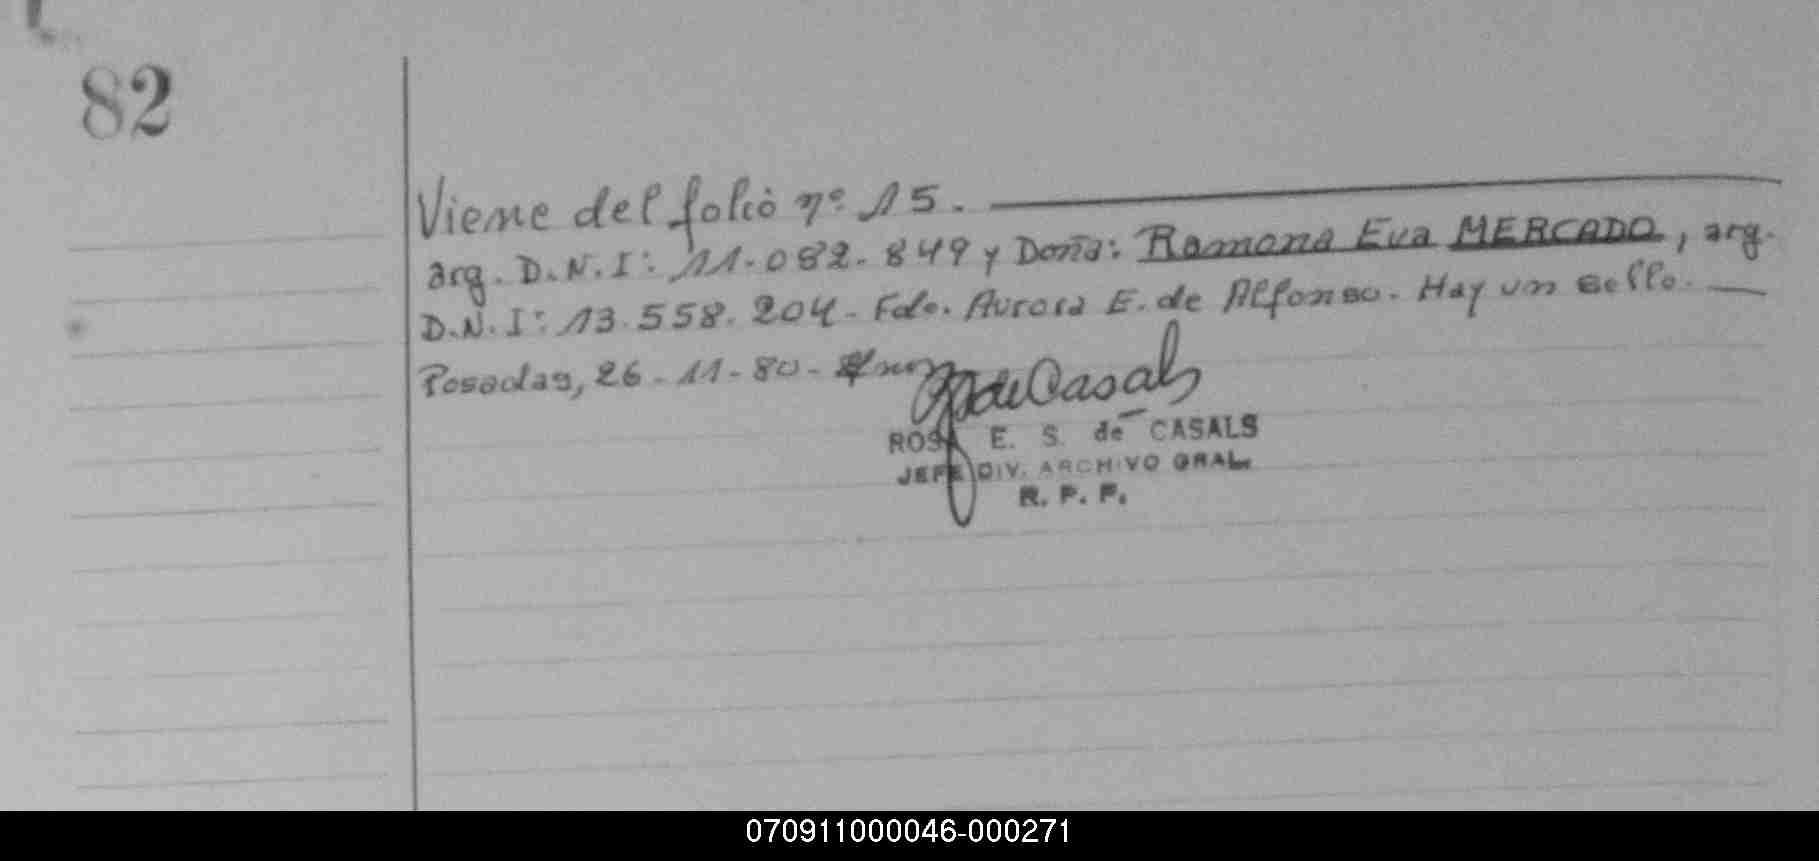 82
Viene del folio nº 15.
arg. D.N.I: 11.082.849 y Doña: Ramona Eva MERCADO, arg.
D.N.I: 13.558.204. Fdo. Aurora E. de Alfonso. Hay un sello.
Posadas, 26-11-80-
de Casals
ROSA E. S. de CASALS
JEFE DIV. ARCHIVO GRAL.
R. P. P.
070911000046-000271